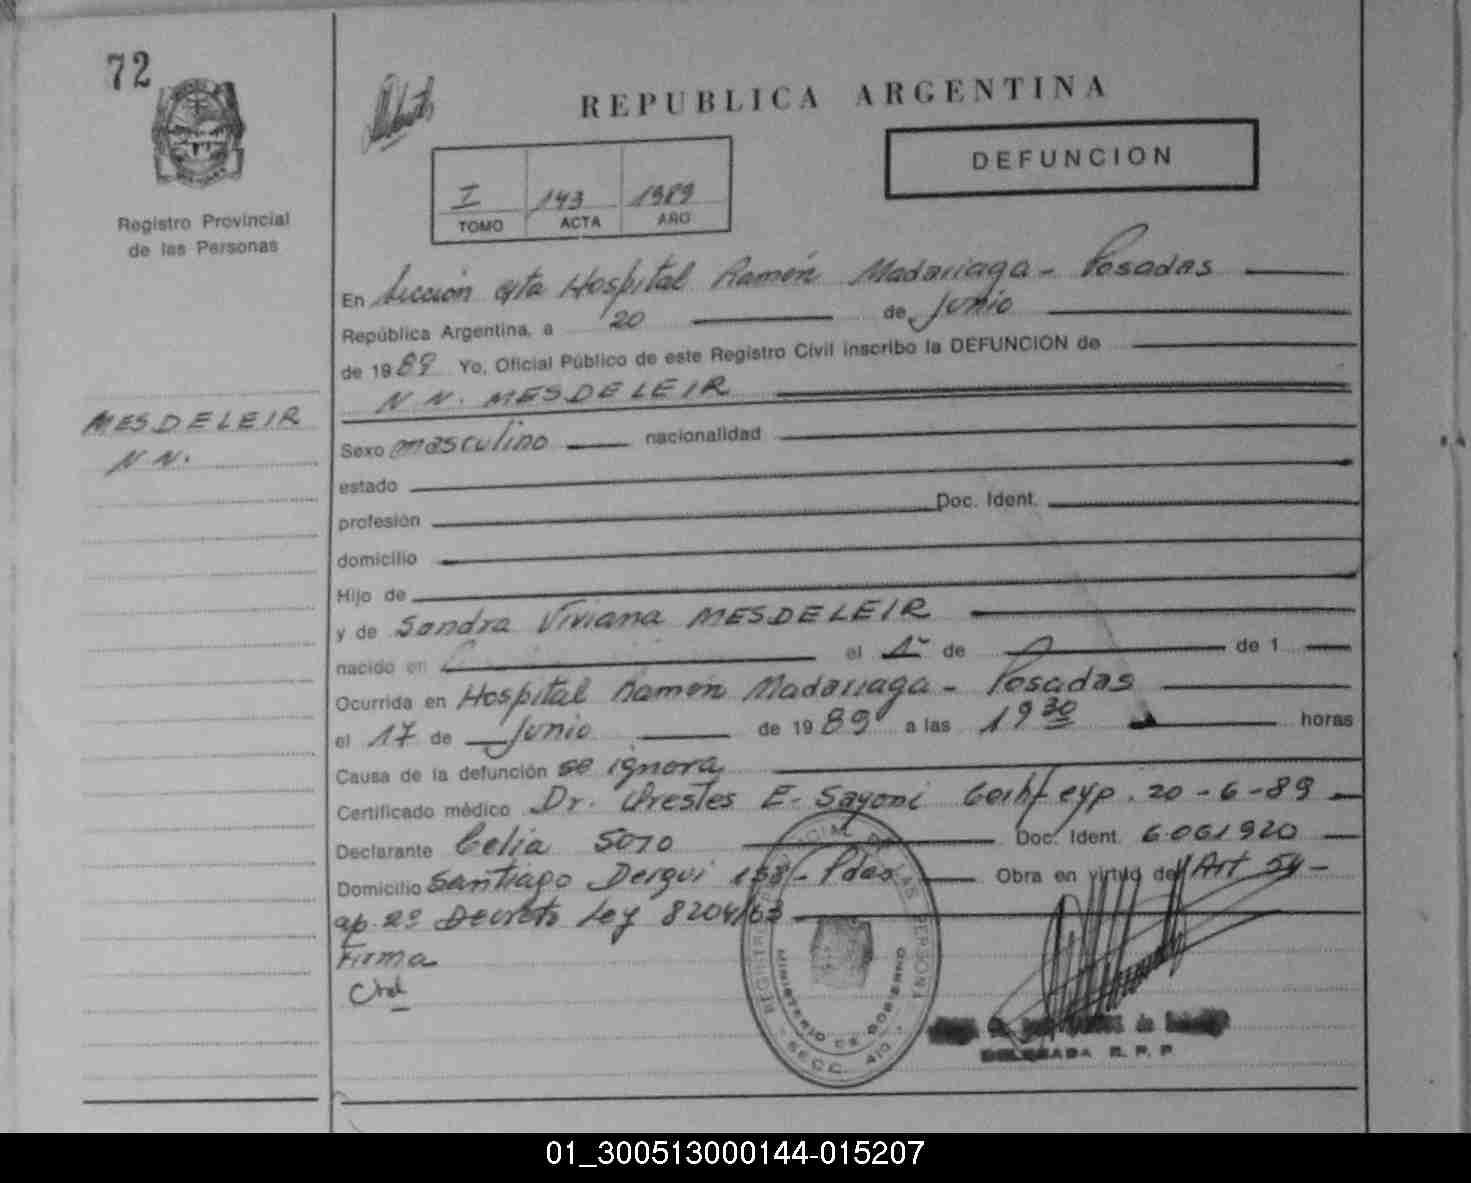 72
REPUBLICA ARGENTINA
DEFUNCION
I 143 1989
TOMO ACTA AÑO
Registro Provincial
de las Personas
En Sección 4ta Hospital Ramón Madariaga - Posadas
República Argentina, a 20 de Junio
de 1989 Yo, Oficial Público de este Registro Civil inscribo la DEFUNCION de
N N. MESDELEIR
MESDELEIR
N N.
Sexo masculino nacionalidad
estado
profesión Doc. Ident.
domicilio
Hijo de
y de Sandra Viviana MESDELEIR
nacido en el de de 1
Ocurrida en Hospital Ramón Madariaga - Posadas
el 17 de Junio de 1989 a las 19 30 horas
Causa de la defunción se ignora
Certificado médico Dr. Orestes E. exp. 20-6-89
Declarante Celia SOTO Doc. Ident. 6.061920
Domicilio Santiago Derqui 158 - Pdas Obra en virtud de Art 54 -
ap. 2º Decreto Ley 8204/63
Firma
REGISTRO PROVINCIAL DE LAS PERSONAS
MINISTERIO DE GOBIERNO
SECC. 4TO
DELEGADA R. P. P.
01_300513000144-015207